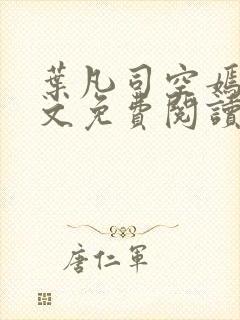 葉凡司空嫣
文免費閱讀
唐仁軍